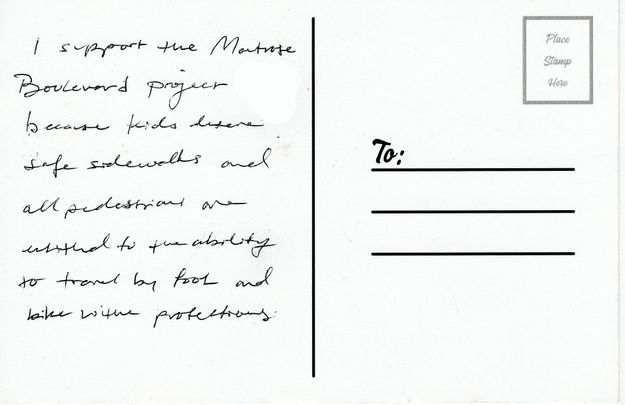 I support the Montrose
Boulevard project
because kids deserve
safe sidewalks and
all pedestrians are
entitled to the ability
to travel by foot and
bike with protections.
Place
Stamp
Here
To: